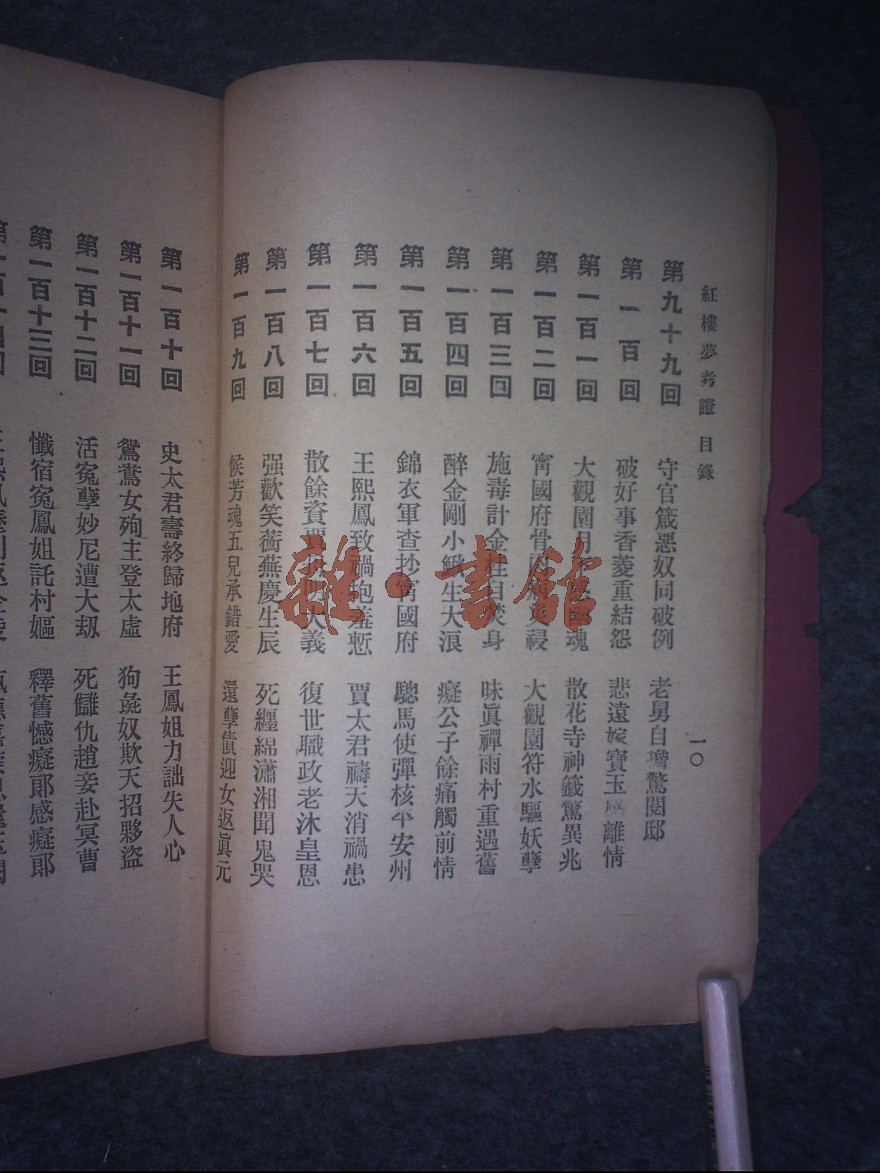 紅樓夢考證 目錄
一〇
第九十九回 守官箴惡奴同破例 老舅自擔驚閱邸
第一百回 破好事香菱重結怨 悲遠嫁寶玉感離情
第一百一回 大觀園月 魂 散花寺神籤驚異兆
第一百二回 甯國府骨 祲 大觀園符水驅妖孽
第一百三回 施毒計金桂自焚身 昧眞禪雨村重遇舊
第一百四回 醉金剛小鰍生大浪 癡公子餘痛觸前情
第一百五回 錦衣軍查抄甯國府 驄馬使彈核平安州
第一百六回 王熙鳳致禍抱羞慙 賈太君禱天消禍患
第一百七回 散餘資賈 明大義 復世職政老沐皇恩
第一百八回 强歡笑蘅蕪慶生辰 死纏綿瀟湘聞鬼哭
第一百九回 候芳魂五兒承錯愛 還孽債迎女返眞元
第一百十回 史太君壽終歸地府 王鳳姐力詘失人心
第一百十一回 鴛鴦女殉主登太虛 狗彘奴欺天招夥盜
第一百十二回 活冤孽妙尼遭大刼 死讎仇趙妾赴冥曹
第一百十三回 懺宿冤鳳姐託村嫗 釋舊憾癡郞感癡郞
雜·書館